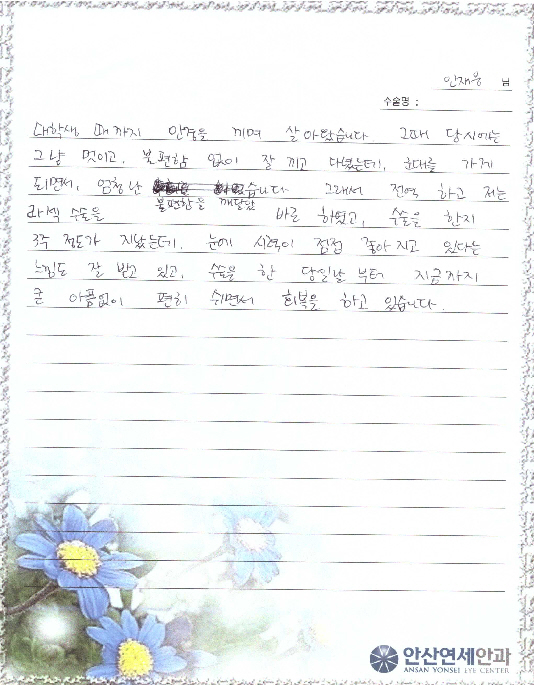 안재웅 님
수술명 :
대학생 때까지 안경을 끼며 살아왔습니다. 그때 당시에는
그냥 멋이고, 불편함 없이 잘 끼고 다녔는데, 군대를 가게
되면서, 엄청난 불편함을 깨달았습니다 그래서 전역 하고 저는
라섹 수술을 바로 하였고, 수술을 한지
3주 정도가 지났는데, 눈에 시력이 점점 좋아지고 있다는
느낌도 잘 받고 있고, 수술을 한 당일날 부터 지금까지
큰 아픔없이 편히 쉬면서 회복을 하고 있습니다.
안산연세안과
ANSAN YONSEI EYE CENTER